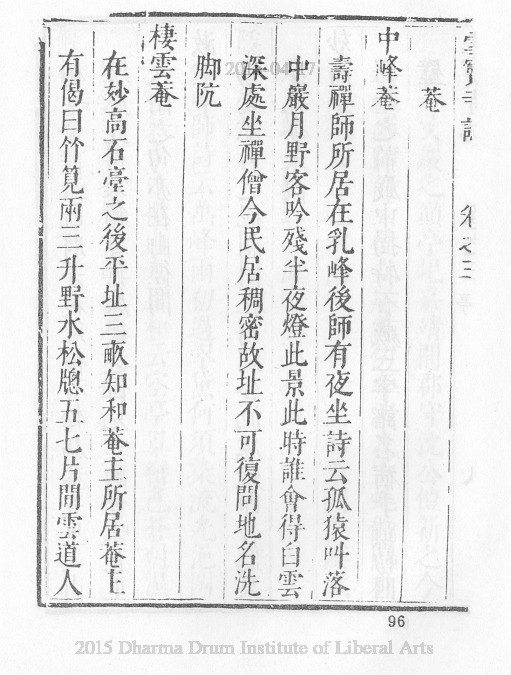 雪竇寺誌　卷之三
菴
中峰菴
壽禪師所居在乳峰後師有夜坐詩云孤猿呌落
中巖月野客吟殘半夜燈此景此時誰會得白雲
深處坐禪僧今民居稠密故址不可復問地名洗
脚阬
棲雲菴
在妙高石臺之後平址三畝知和菴主所居菴主
有偈曰竹筧兩三升野水松牕五七片閒雲道人
96
2015 Dharma Drum Institute of Liberal Arts